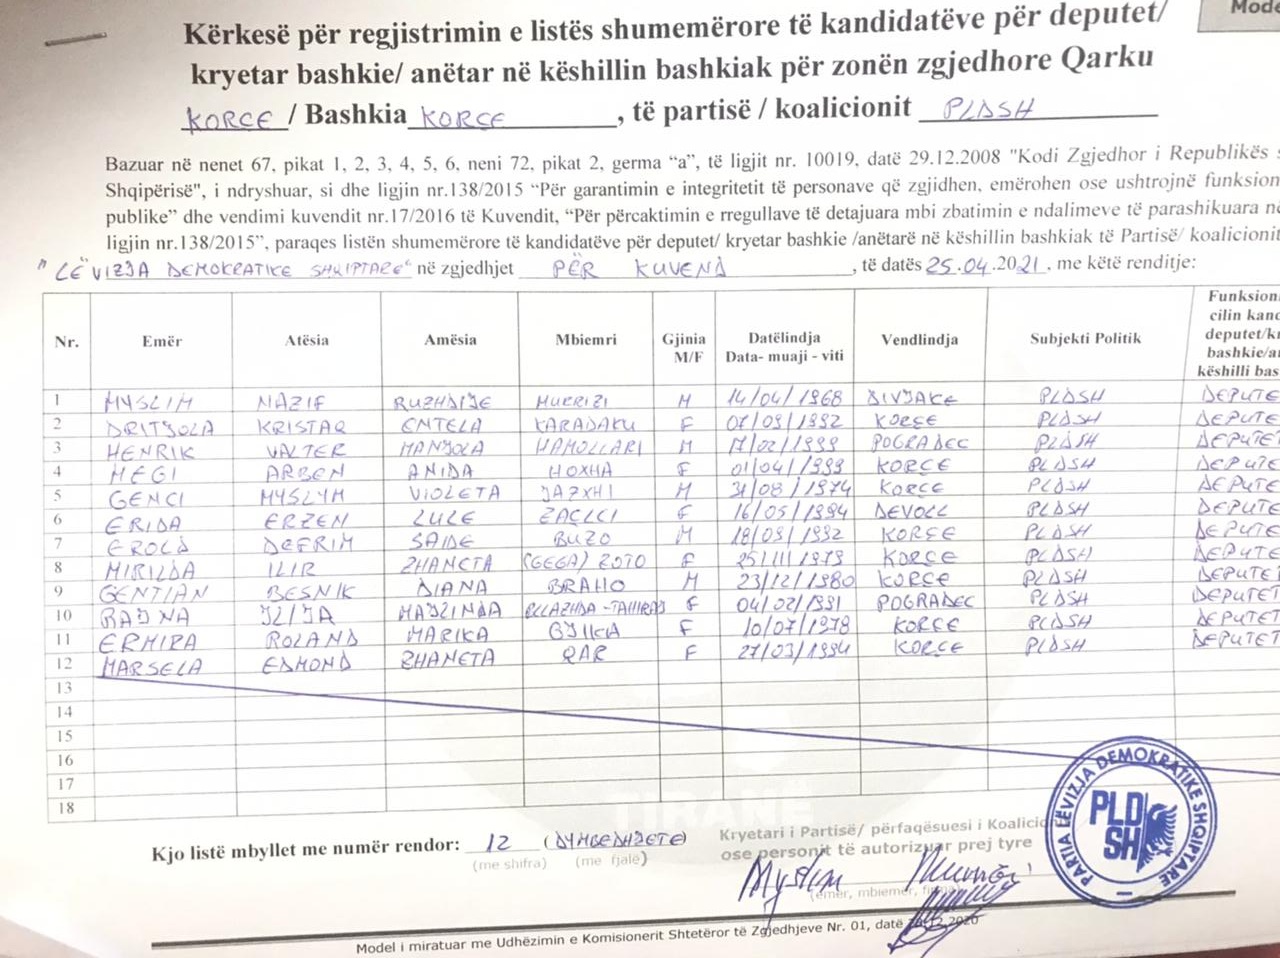 Mode
Kërkesë për regjistrimin e listës shumemërore të kandidatëve për deputet/
kryetar bashkie/ anëtar në këshillin bashkiak për zonën zgjedhore Qarku
KORCE / Bashkia KORCE, të partisë / koalicionit PLDSH
Bazuar në nenet 67, pikat 1, 2, 3, 4, 5, 6, neni 72, pikat 2, germa “a”, të ligjit nr. 10019, datë 29.12.2008 "Kodi Zgjedhor i Republikës s
Shqipërisë", i ndryshuar, si dhe ligjin nr.138/2015 “Për garantimin e integritetit të personave që zgjidhen, emërohen ose ushtrojnë funksion
publike” dhe vendimi kuvendit nr.17/2016 të Kuvendit, “Për përcaktimin e rregullave të detajuara mbi zbatimin e ndalimeve të parashikuara në
ligjin nr.138/2015”, paraqes listën shumemërore të kandidatëve për deputet/ kryetar bashkie /anëtarë në këshillin bashkiak të Partisë/ koalicionit
"LËVIZJA DEMOKRATIKE SHQIPTARE" në zgjedhjet PËR KUVEND, të datës 25.04.2021, me këtë renditje:
Nr. Emër Atësia Amësia Mbiemri Gjinia M/F Datëlindja Data- muaji - viti Vendlindja Subjekti Politik Funksion cilin kand deputet/k bashkie/a këshilli bas
1 MYSLIM NAZIF RUZHDIJE MURRIZI M 14/04/1968 DIVJAKE PLDSH DEPUTE
2 DRITJOLA KRISTAQ ENTELA KARADAKU F 07/09/1992 KORCE PLDSH DEPUTE
3 HENRIK VALTER MANJOLA HAMOLLARI M 17/02/1999 POGRADEC PLDSH DEPUTE
4 MEGI ARBEN ANIDA HOXHA F 01/04/1999 KORCE PLDSH DEPUTE
5 GENCI MYSLYM VIOLETA JAZXHI M 31/08/1974 KORCE PLDSH DEPUTE
6 ERIDA ERZEN LULE F 16/05/1994 DEVOLL PLDSH DEPUTE
7 EROLD DEFRIM SAIDE BUZO M 18/09/1992 KORCE PLDSH DEPUTE
8 MIRILDA ILIR ZHANETA (GEGA) ZOTO F 25/11/1979 KORCE PLDSH DEPUTE
9 GENTIAN BESNIK DIANA BRAHO M 23/12/1980 KORCE PLDSH DEPUTET
10 ILIJA MAJLINDA F 04/02/1991 POGRADEC PLDSH DEPUTET
11 ERMIRA ROLAND MARIKA F 10/07/1978 KORCE PLDSH DEPUTET
12 MARSELA EDMOND ZHANETA QAR F 27/03/1994 KORCE PLDSH DEPUTET
13
14
15
16
17
18
TIRANË
Kjo listë mbyllet me numër rendor: 12 (DYMBEDHJETE)
(me shifra) (me fjalë)
Kryetari i Partisë/ përfaqësuesi i Koalicio
ose personit të autorizuar prej tyre
Myslim
(emër, mbiemër, firma)
PARTIA LËVIZJA DEMOKRATIKE SHQIPTARE
PLD
SH
Model i miratuar me Udhëzimin e Komisionerit Shtetëror të Zgjedhjeve Nr. 01, datë 2020